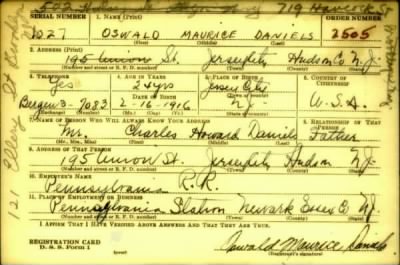 719 Hancock St
SERIAL NUMBER 1. NAME (Print) ORDER NUMBER
1027 OSWALD MAURICE DANIELS 2505
(First) (Middle) (Last)
2. ADDRESS (Print)
195 Union St. Jersey City Hudson Co N.J.
(Number and street or R. F. D. number) (Town) (County) (State)
3. TELEPHONE 4. AGE IN YEARS 5. PLACE OF BIRTH 6. COUNTRY OF CITIZENSHIP
Yes 24 yrs Jersey City
DATE OF BIRTH
Bergen 3-7083 2-16-1916 N.J. U.S.A.
(Exchange) (Number) (Mo.) (Day) (Yr.) (State or country)
7. NAME OF PERSON WHO WILL ALWAYS KNOW YOUR ADDRESS 8. RELATIONSHIP OF THAT PERSON
Mr. Charles Howard Daniels Father
(Mr., Mrs., Miss) (First) (Middle) (Last)
9. ADDRESS OF THAT PERSON
195 Union St. Jersey City Hudson N.J.
(Number and street or R. F. D. number) (Town) (County) (State)
10. EMPLOYER'S NAME
Pennsylvania R.R.
11. PLACE OF EMPLOYMENT OR BUSINESS
Pennsylvania Station Newark Essex Co N.J.
(Number and street or R. F. D. number) (Town) (County) (State)
I AFFIRM THAT I HAVE VERIFIED ABOVE ANSWERS AND THAT THEY ARE TRUE.
REGISTRATION CARD
D. S. S. Form 1
Oswald Maurice Daniels
(Registrant's signature)